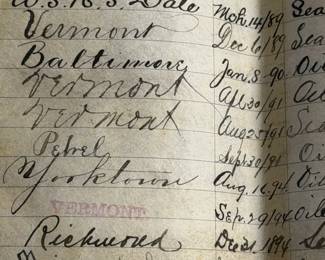 U.S.R.S. Dale Mch. 14/89 Sea
Vermont Dec 6/89 Sea
Baltimore Jan. 8-90
Vermont Apl 20/91
Vermont Aug 25/91 Sea
Petrel Sept 20/91 Oi
Yorktown Aug. 16.94 Oi
VERMONT Sep. 29/94 Oile
Richmond Dec 31 1894 Se